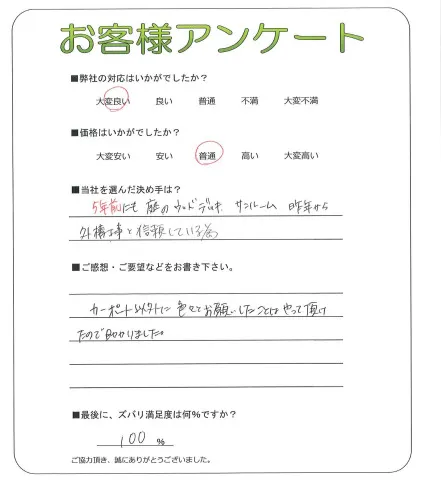 お客様アンケート
■弊社の対応はいかがでしたか？
大変良い 良い 普通 不満 大変不満
■価格はいかがでしたか？
大変安い 安い 普通 高い 大変高い
■当社を選んだ決め手は？
5年前にも 庭のウッドデッキ サンルーム 昨年から
外構工事と信頼している為
■ご感想・ご要望などをお書き下さい。
カーポート以外に 色々とお願いしたことはやって頂け
たので助かりました。
■最後に、ズバリ満足度は何%ですか？
100 %
ご協力頂き、誠にありがとうございました。